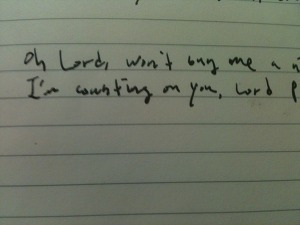 Oh Lord, won't buy me a
I'm counting on you, Lord